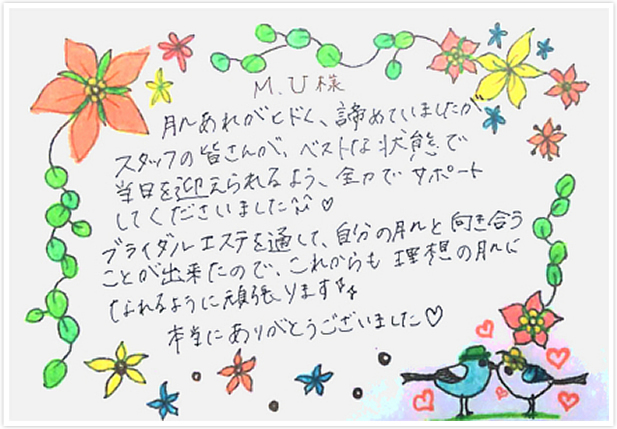 M.U様
肌あれがヒドく、諦めていましたが
スタッフの皆さんが、ベストな状態で
当日を迎えられるよう、全力でサポート
してくださいました^^♡
ブライダルエステを通して、自分の肌と向き合う
ことが出来たので、これからも理想の肌に
なれるように頑張ります!!
本当にありがとうございました♡